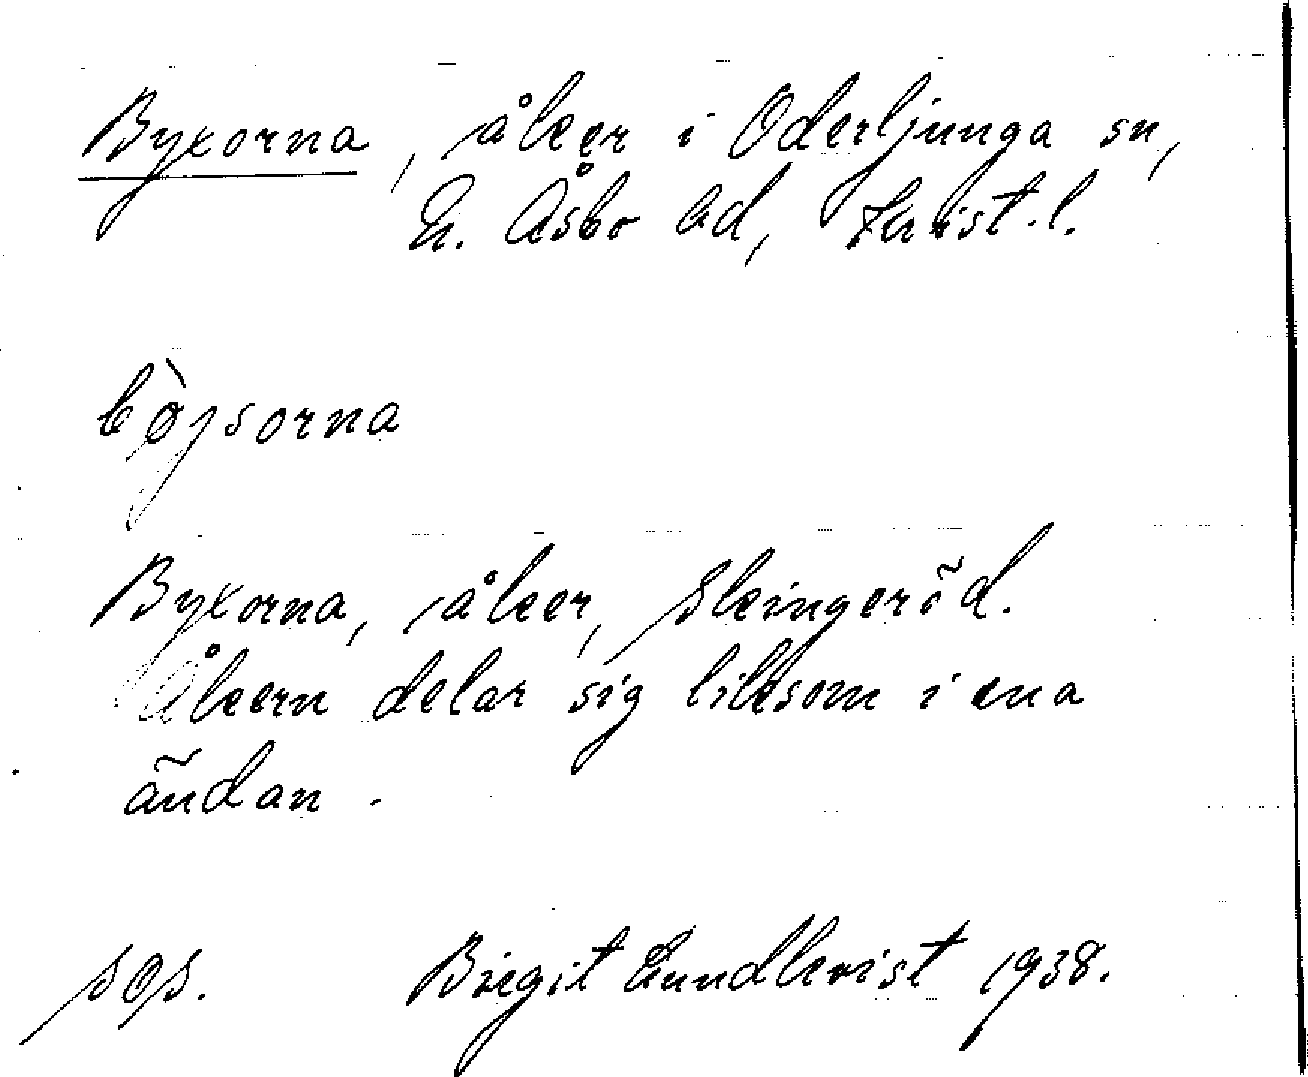 Byxorna, åker i Oderljunga sn,
N. Åsbo hd, Krist. l.
bòjsorna
Byxorna, åker, Skingeröd.
Åkern delar sig liksom i ena
ändan.
sgs. Birgit Lundkvist 1938.